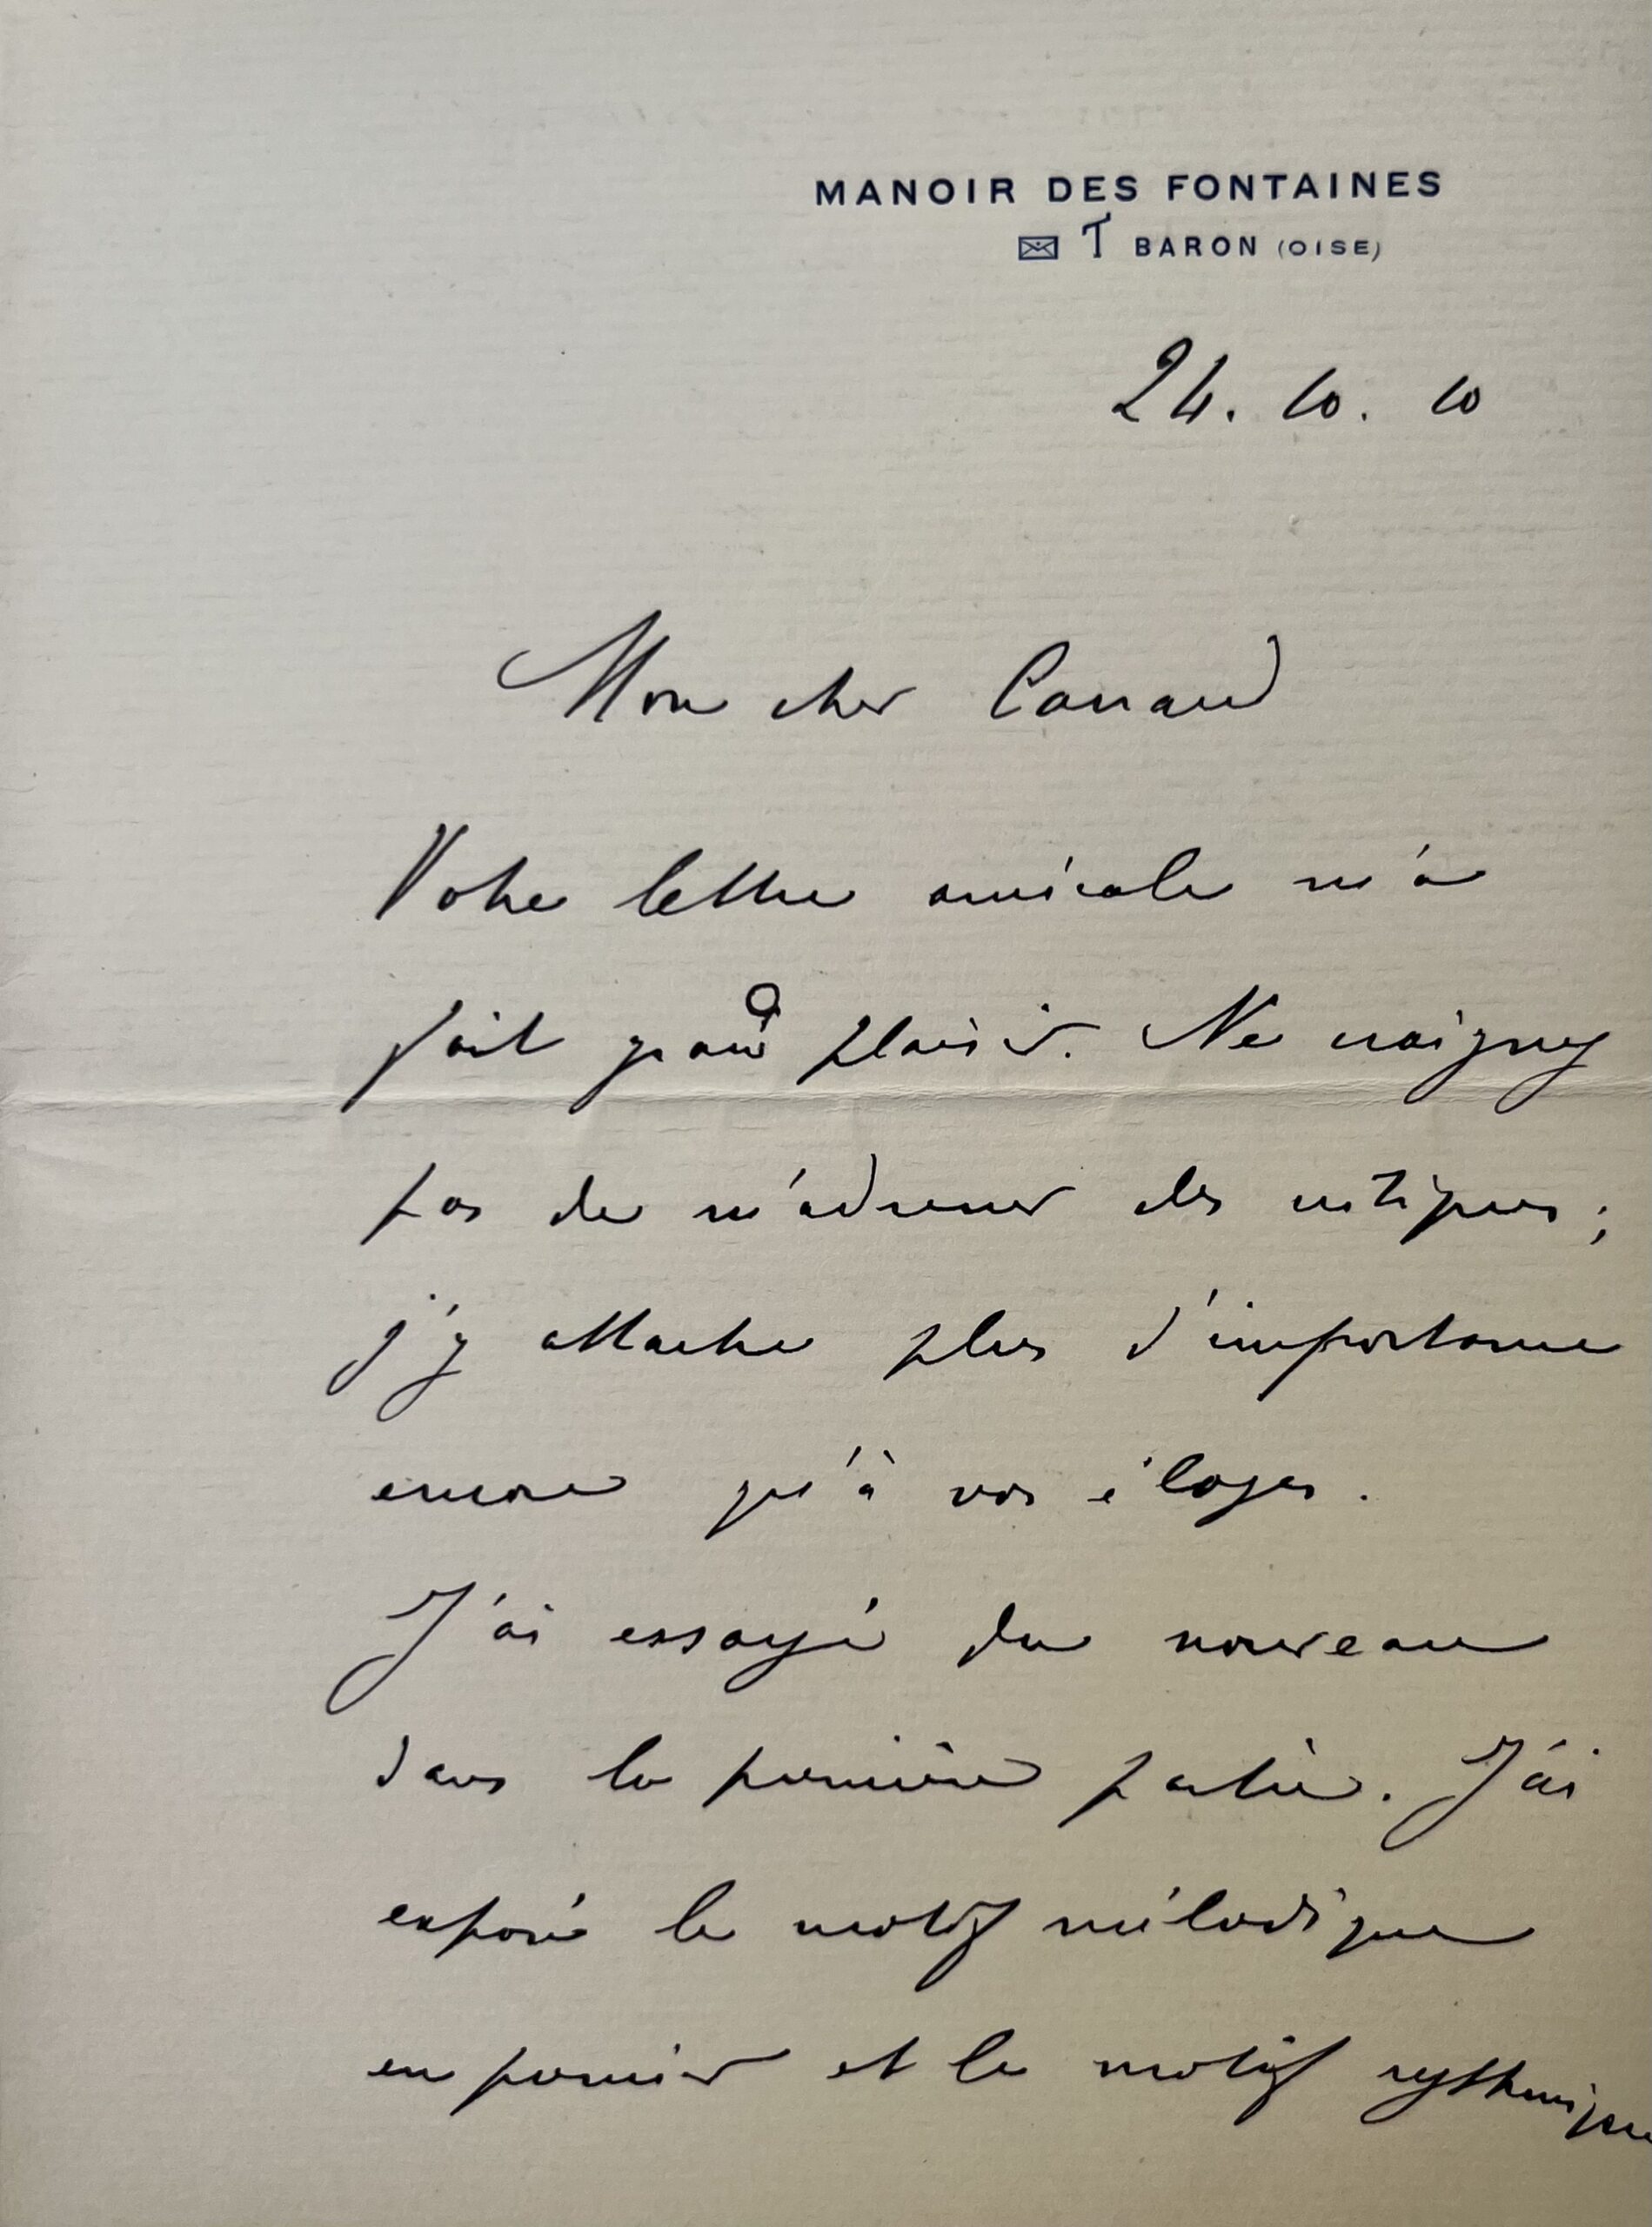 MANOIR DES FONTAINES
T BARON (OISE)
24. 10. 10
Mon cher Canaud
Votre lettre amicale m'a
fait grand plaisir. Ne craignez
pas de m'adresser des critiques ;
j'y attache plus d'importance
encore qu'à vos éloges.
J'ai essayé du nouveau
dans la première partie. J'ai
exposé le motif mélodique
en premier et le motif rythmique